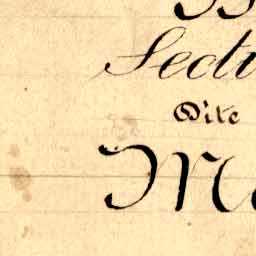 Secti
Dite
Me